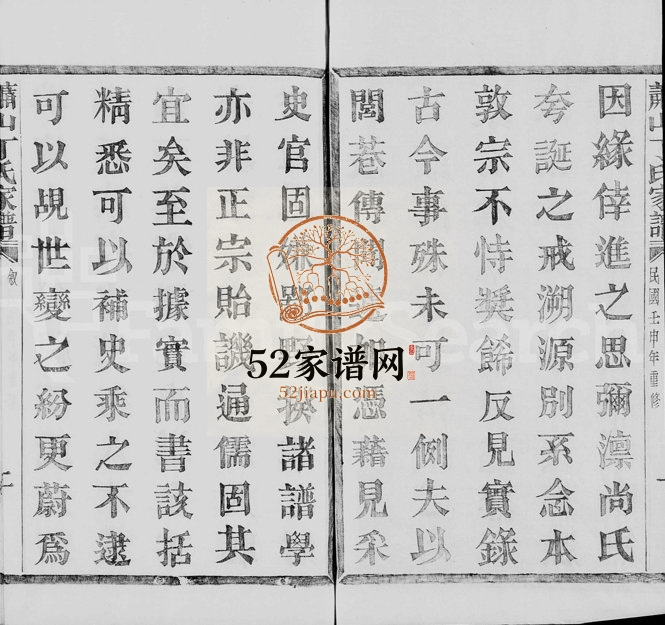 蕭山丁氏家譜
民國壬申年重修
因緣倖進之思彌凜尚氏
夸誕之戒溯源別系念本
敦宗不恃獎餙反見實錄
古今事殊未可一例夫以
閭巷傳 憑藉見采
史官固 諸譜學
亦非正宗貽譏通儒固其
宜矣至於據實而書該括
精悉可以補史乘之不逮
可以覘世變之紛更蔚爲
蕭山丁氏家譜
敘
52家谱网
52jiapu.com